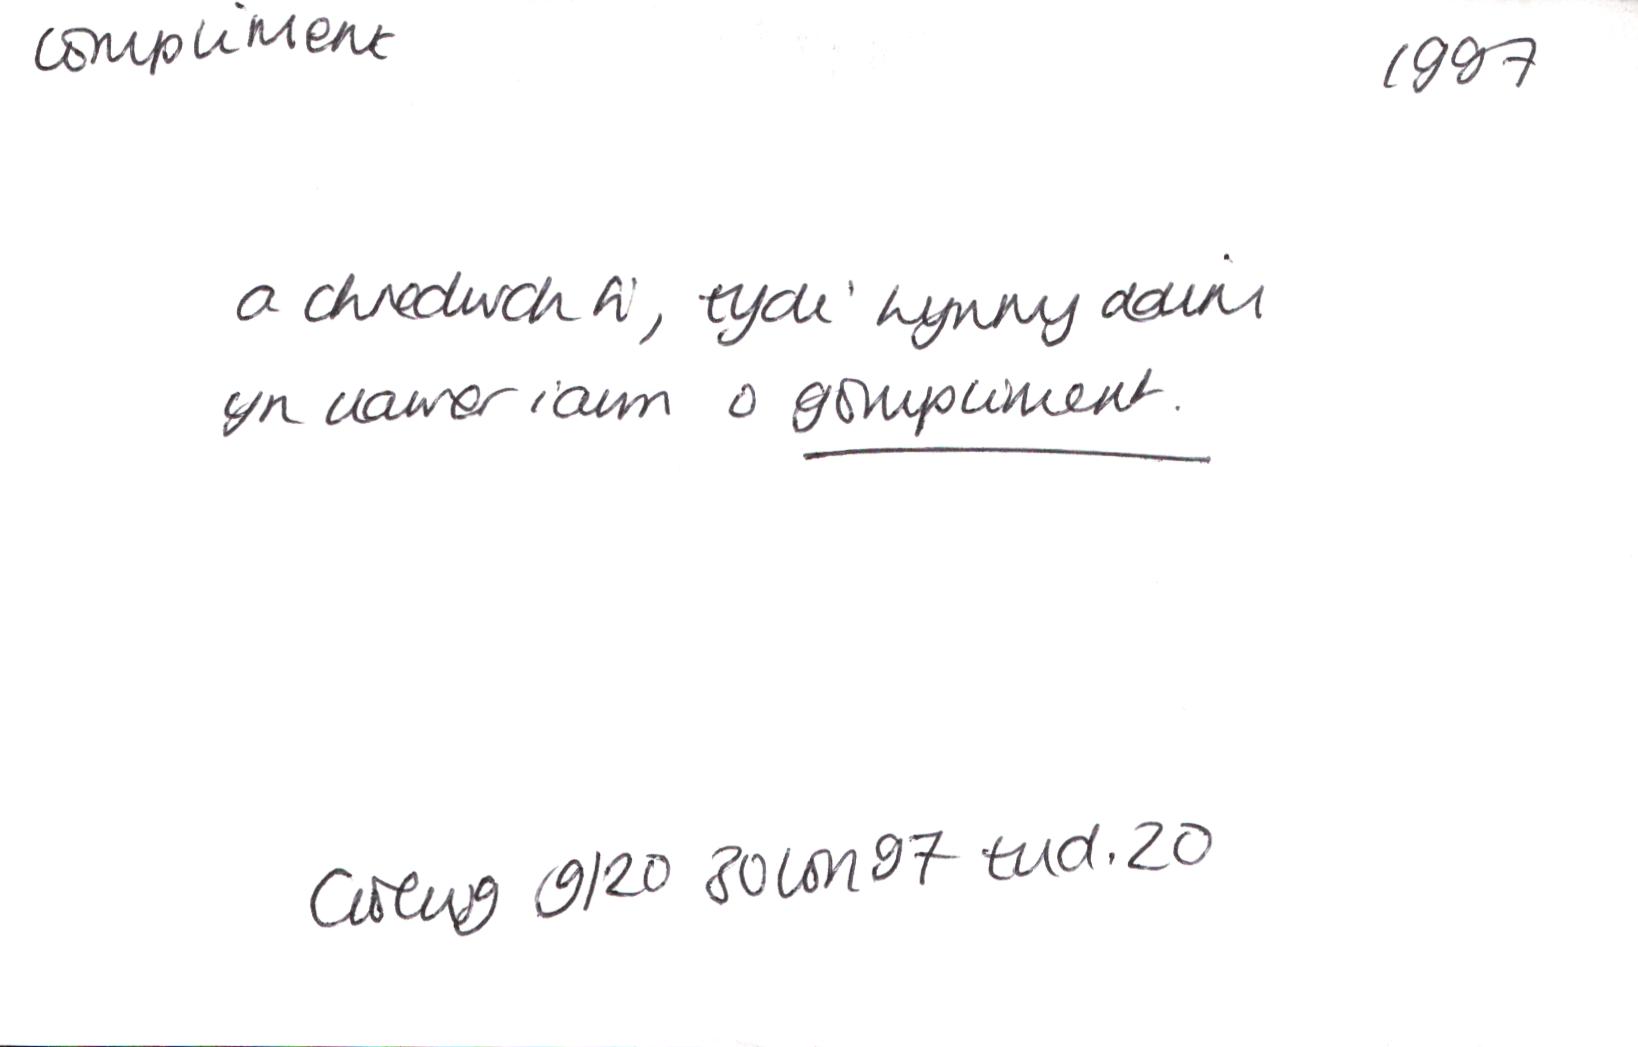 compliment 1997
a chredwch fi, tydi hynny ddim
yn llawer iawn o gompliment.
Golwg 9/20 30 Ion 97 tud. 20